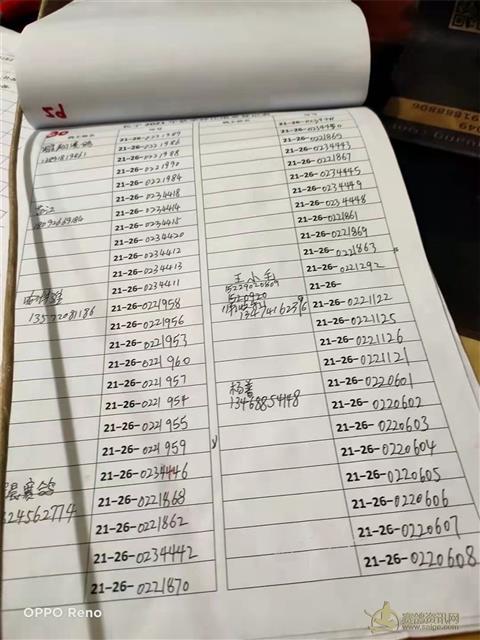 30
21-26-0221989
21-26-0221986
21-26-0221988
21-26-0221990
21-26-0221984
21-26-0234418
21-26-0234414
21-26-0234415
21-26-0234420
21-26-0234412
21-26-0234413
21-26-0234411
13572081186
21-26-0221958
21-26-0221956
21-26-0221953
21-26-0221960
21-26-0221957
21-26-0221954
21-26-0221955
21-26-0221959
晨赛鸽
324562774
21-26-0234446
21-26-0221868
21-26-0221862
21-26-0234442
21-26-0221870
21-26-0221865
21-26-0234443
21-26-0221867
21-26-0234445
21-26-0234449
21-26-0234448
21-26-0221861
21-26-0221869
21-26-0221863
21-26-0221292
王小毛
15229020809
21-26-
13474162396
21-26-0221122
21-26-0221125
21-26-0221126
21-26-0221121
杨善
13468854148
21-26-0220601
21-26-0220602
21-26-0220603
21-26-0220604
21-26-0220605
21-26-0220606
21-26-0220607
21-26-0220608
OPPO Reno
赛鸽资讯网
www.saige.com